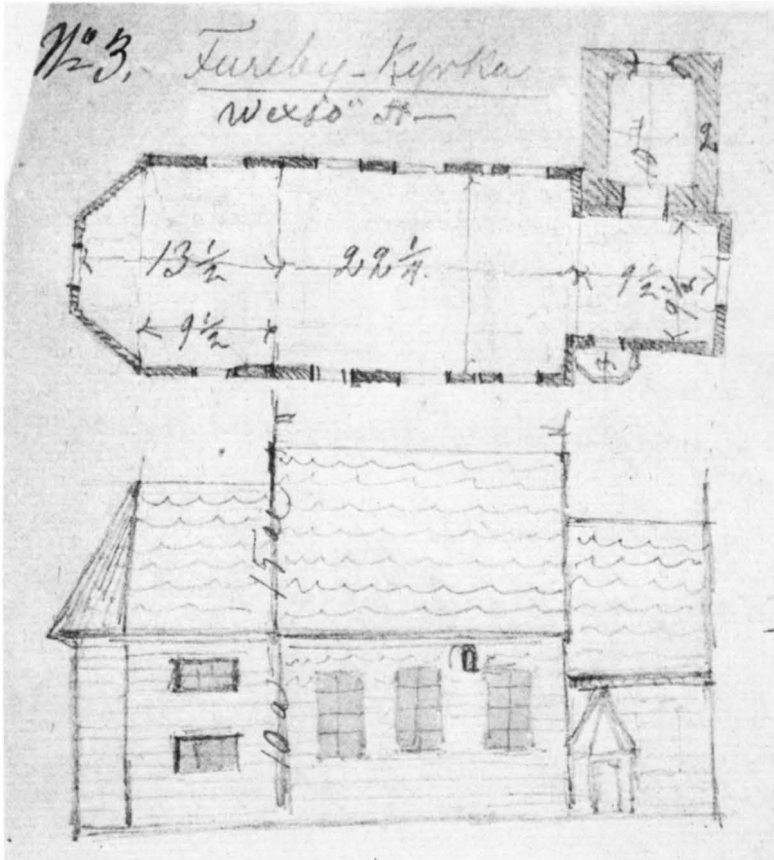 No 3. Fureby-Kyrka
Wexsö St
10
2
13 1/2
22 1/4
9 1/2
9 1/2
9 1/2
15 al
10 al